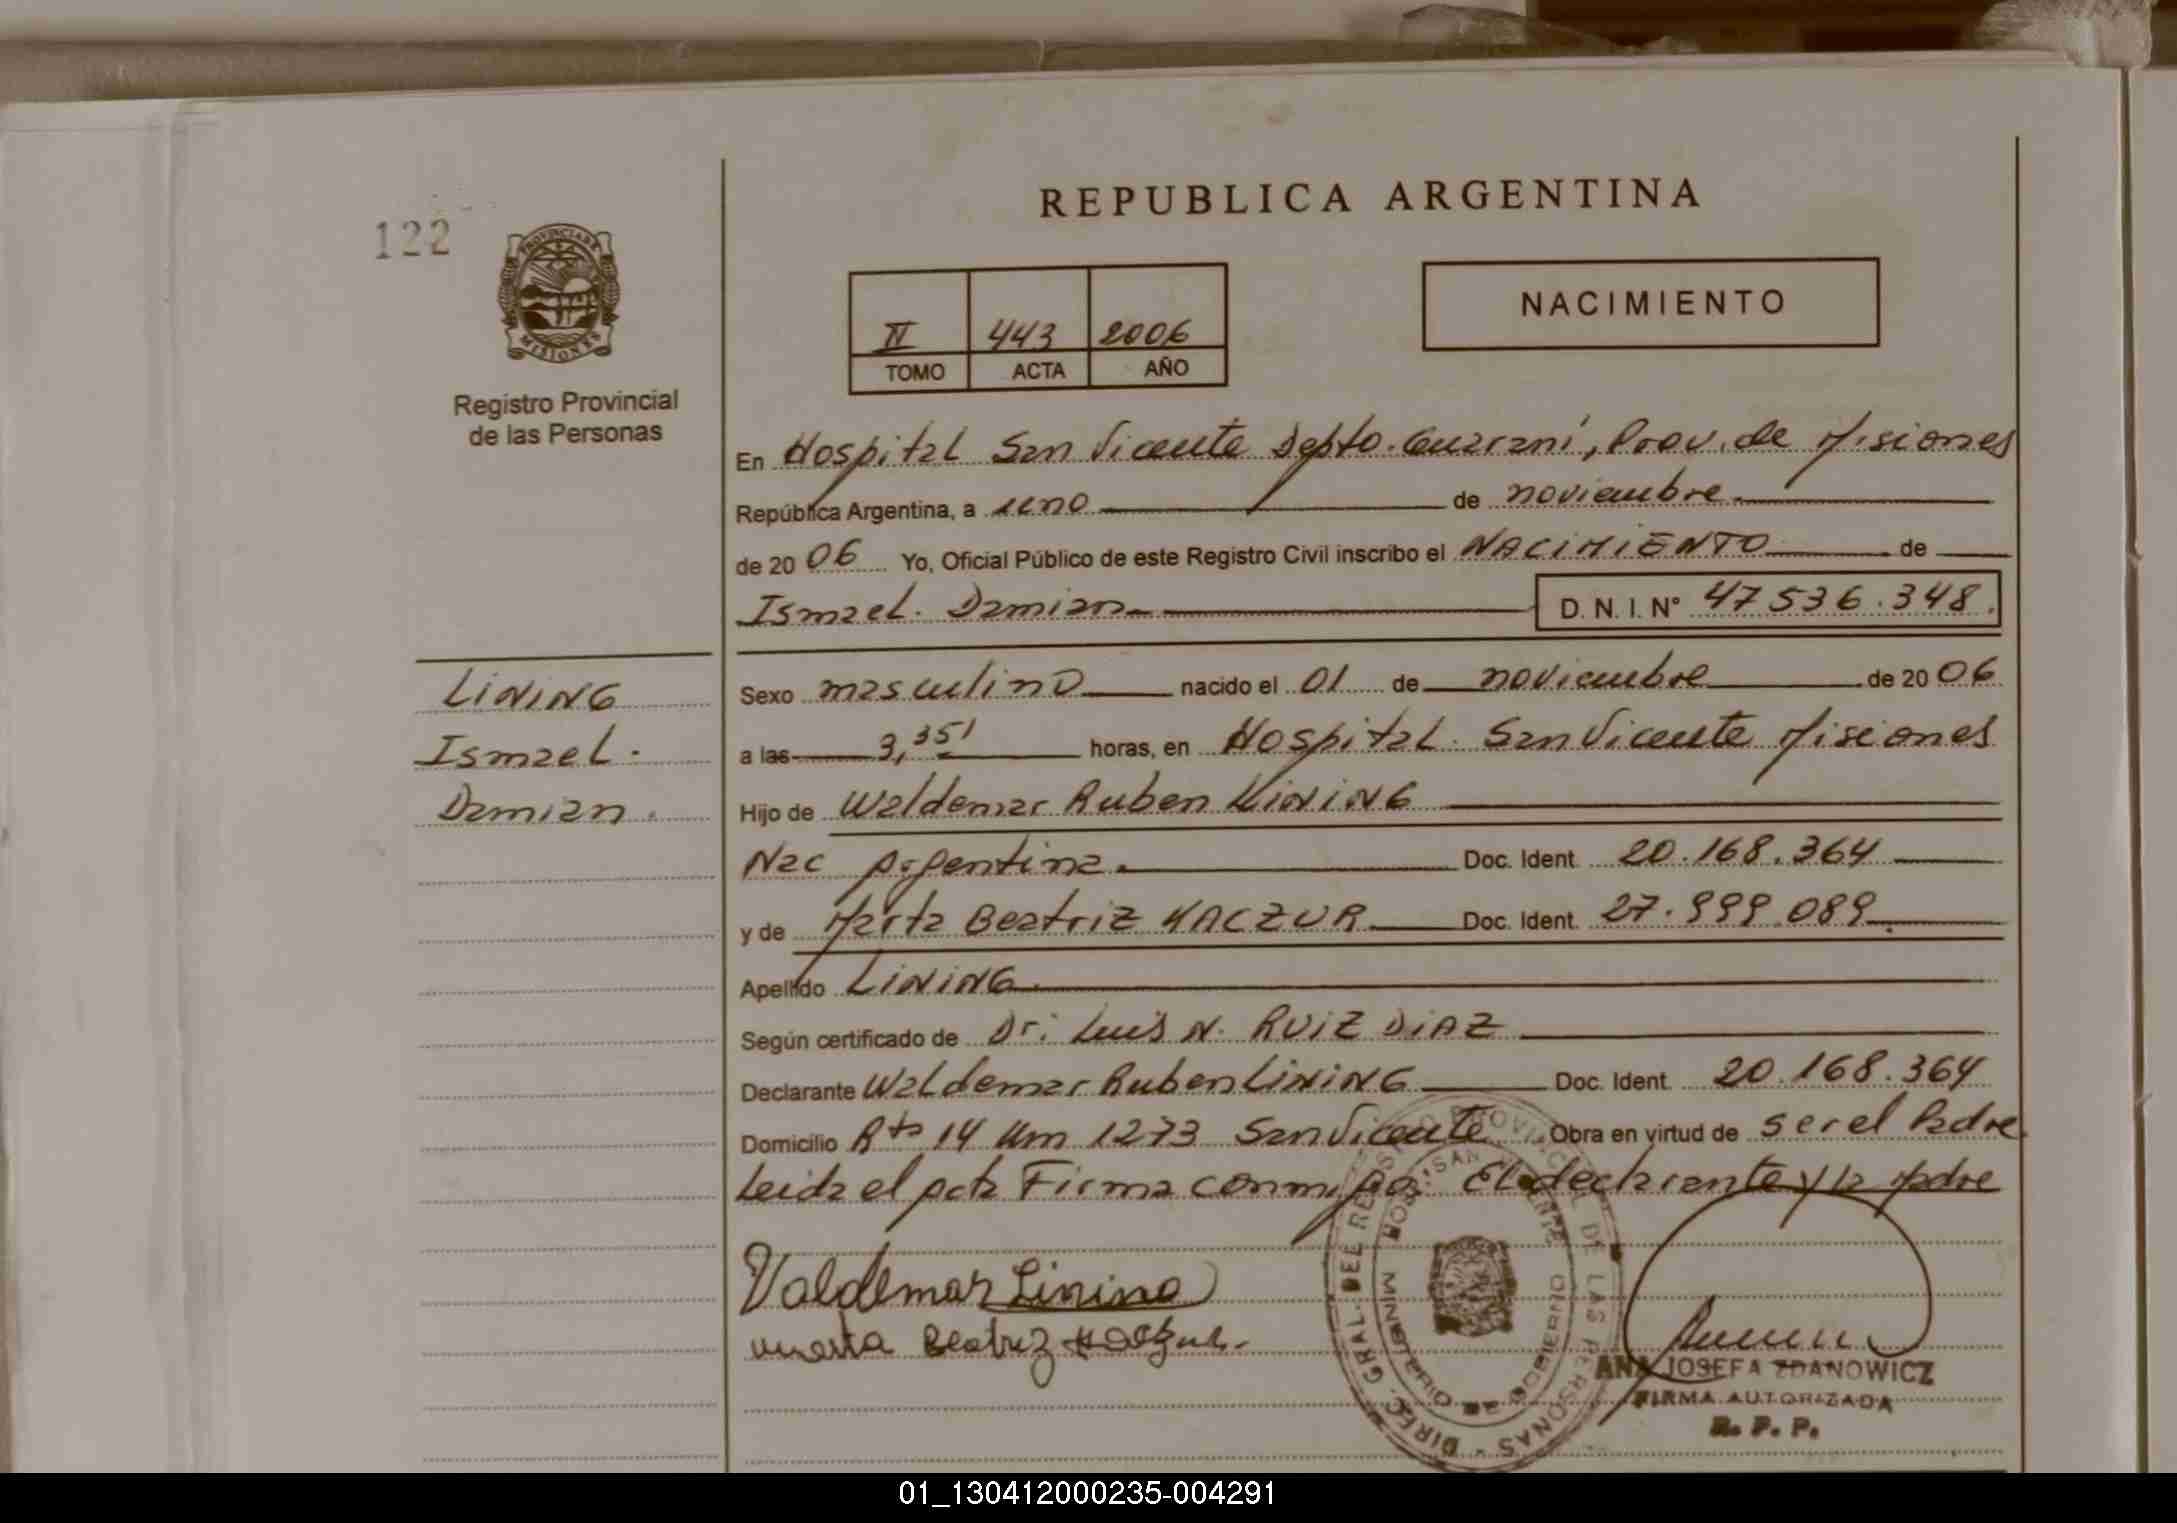 REPUBLICA ARGENTINA
122
PROVINCIA DE
MISIONES
Registro Provincial
de las Personas
NACIMIENTO
II 443 2006
TOMO ACTA AÑO
En Hospital San Vicente Depto. Guarani, Prov. de Misiones
República Argentina, a uno de noviembre
de 2006 Yo, Oficial Público de este Registro Civil inscribo el NACIMIENTO de
Ismael Damian D. N. I. N° 47536.348.
LINING
Ismael.
Damian.
Sexo masculino nacido el 01 de noviembre de 2006
a las 3,35' horas, en Hospital San Vicente Misiones
Hijo de Waldemar Ruben LINING
Nac Argentina. Doc. Ident. 20.168.364
y de Marta Beatriz KACZUR Doc. Ident. 27.999.089
Apellido LINING
Según certificado de Dr: Luis N. RUIZ DIAZ
Declarante Waldemar Ruben LINING Doc. Ident. 20.168.364
Domicilio Rta 14 Km 1273 San Vicente Obra en virtud de ser el Padre
Leida el acta Firma conmigo. El declarante y la Madre
Valdemar Lining
Marta Beatriz Kaczur.
DIREC. GRAL. DEL REGISTRO PROVINCIAL DE LAS PERSONAS
HOSP. SAN VICENTE
ANA JOSEFA ZDANOWICZ
FIRMA AUTORIZADA
R. P. P.
01_130412000235-004291